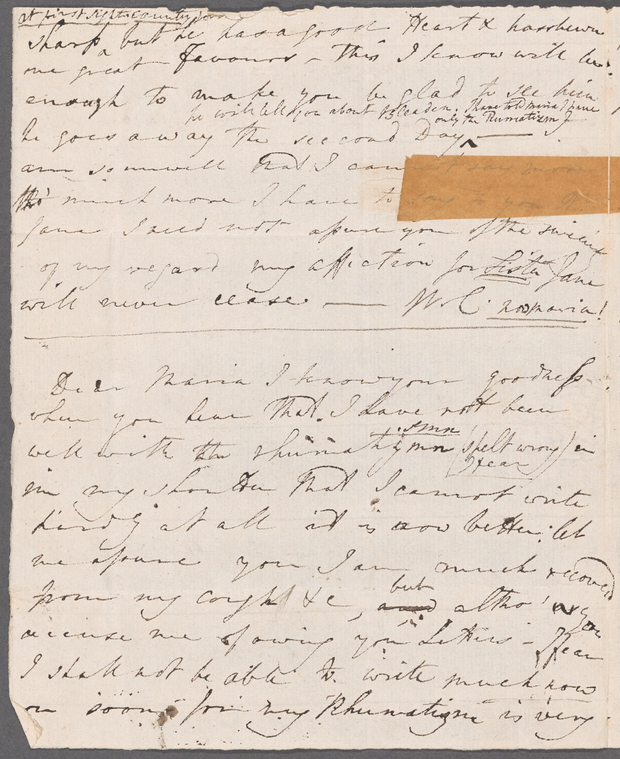 at first sight County
sharp but he has a good Heart & has shewn
me great favours — this I know will be
enough to make you be glad to see him
he will tell you about I have told maria I have
only the Rumatism I
he goes away the second Day —
am so unwell that I can
tho' much more I have to
Jane I need not assure you of the
of my regard my affection for Sister Jane
will never cease. — W. C. maria!
Dear Maria I know your goodness
when you hear that I have not been
well with the rhumatiymn (spelt wrong) in
ismn I fear
in my shoulder that I cannot write
hardly at all it is now better; let
me assure you I am much recoverd
from my cough &c, but altho' you
accuse me of owing you Letters — I fear
I shall not be able to write much now
or soon for my Rhumatism is very